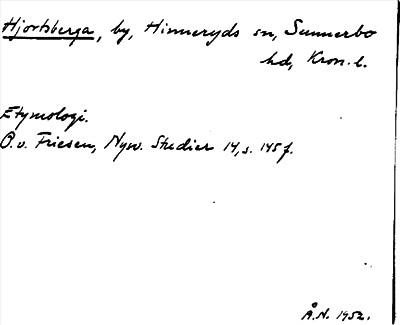 Hjortsberga, by, Hinneryds sn, Sunnerbo
hd, Kron. l.
Etymologi.
O. v. Friesen, Nysv. Studier 14, s. 145 f.
Å. N. 1952.